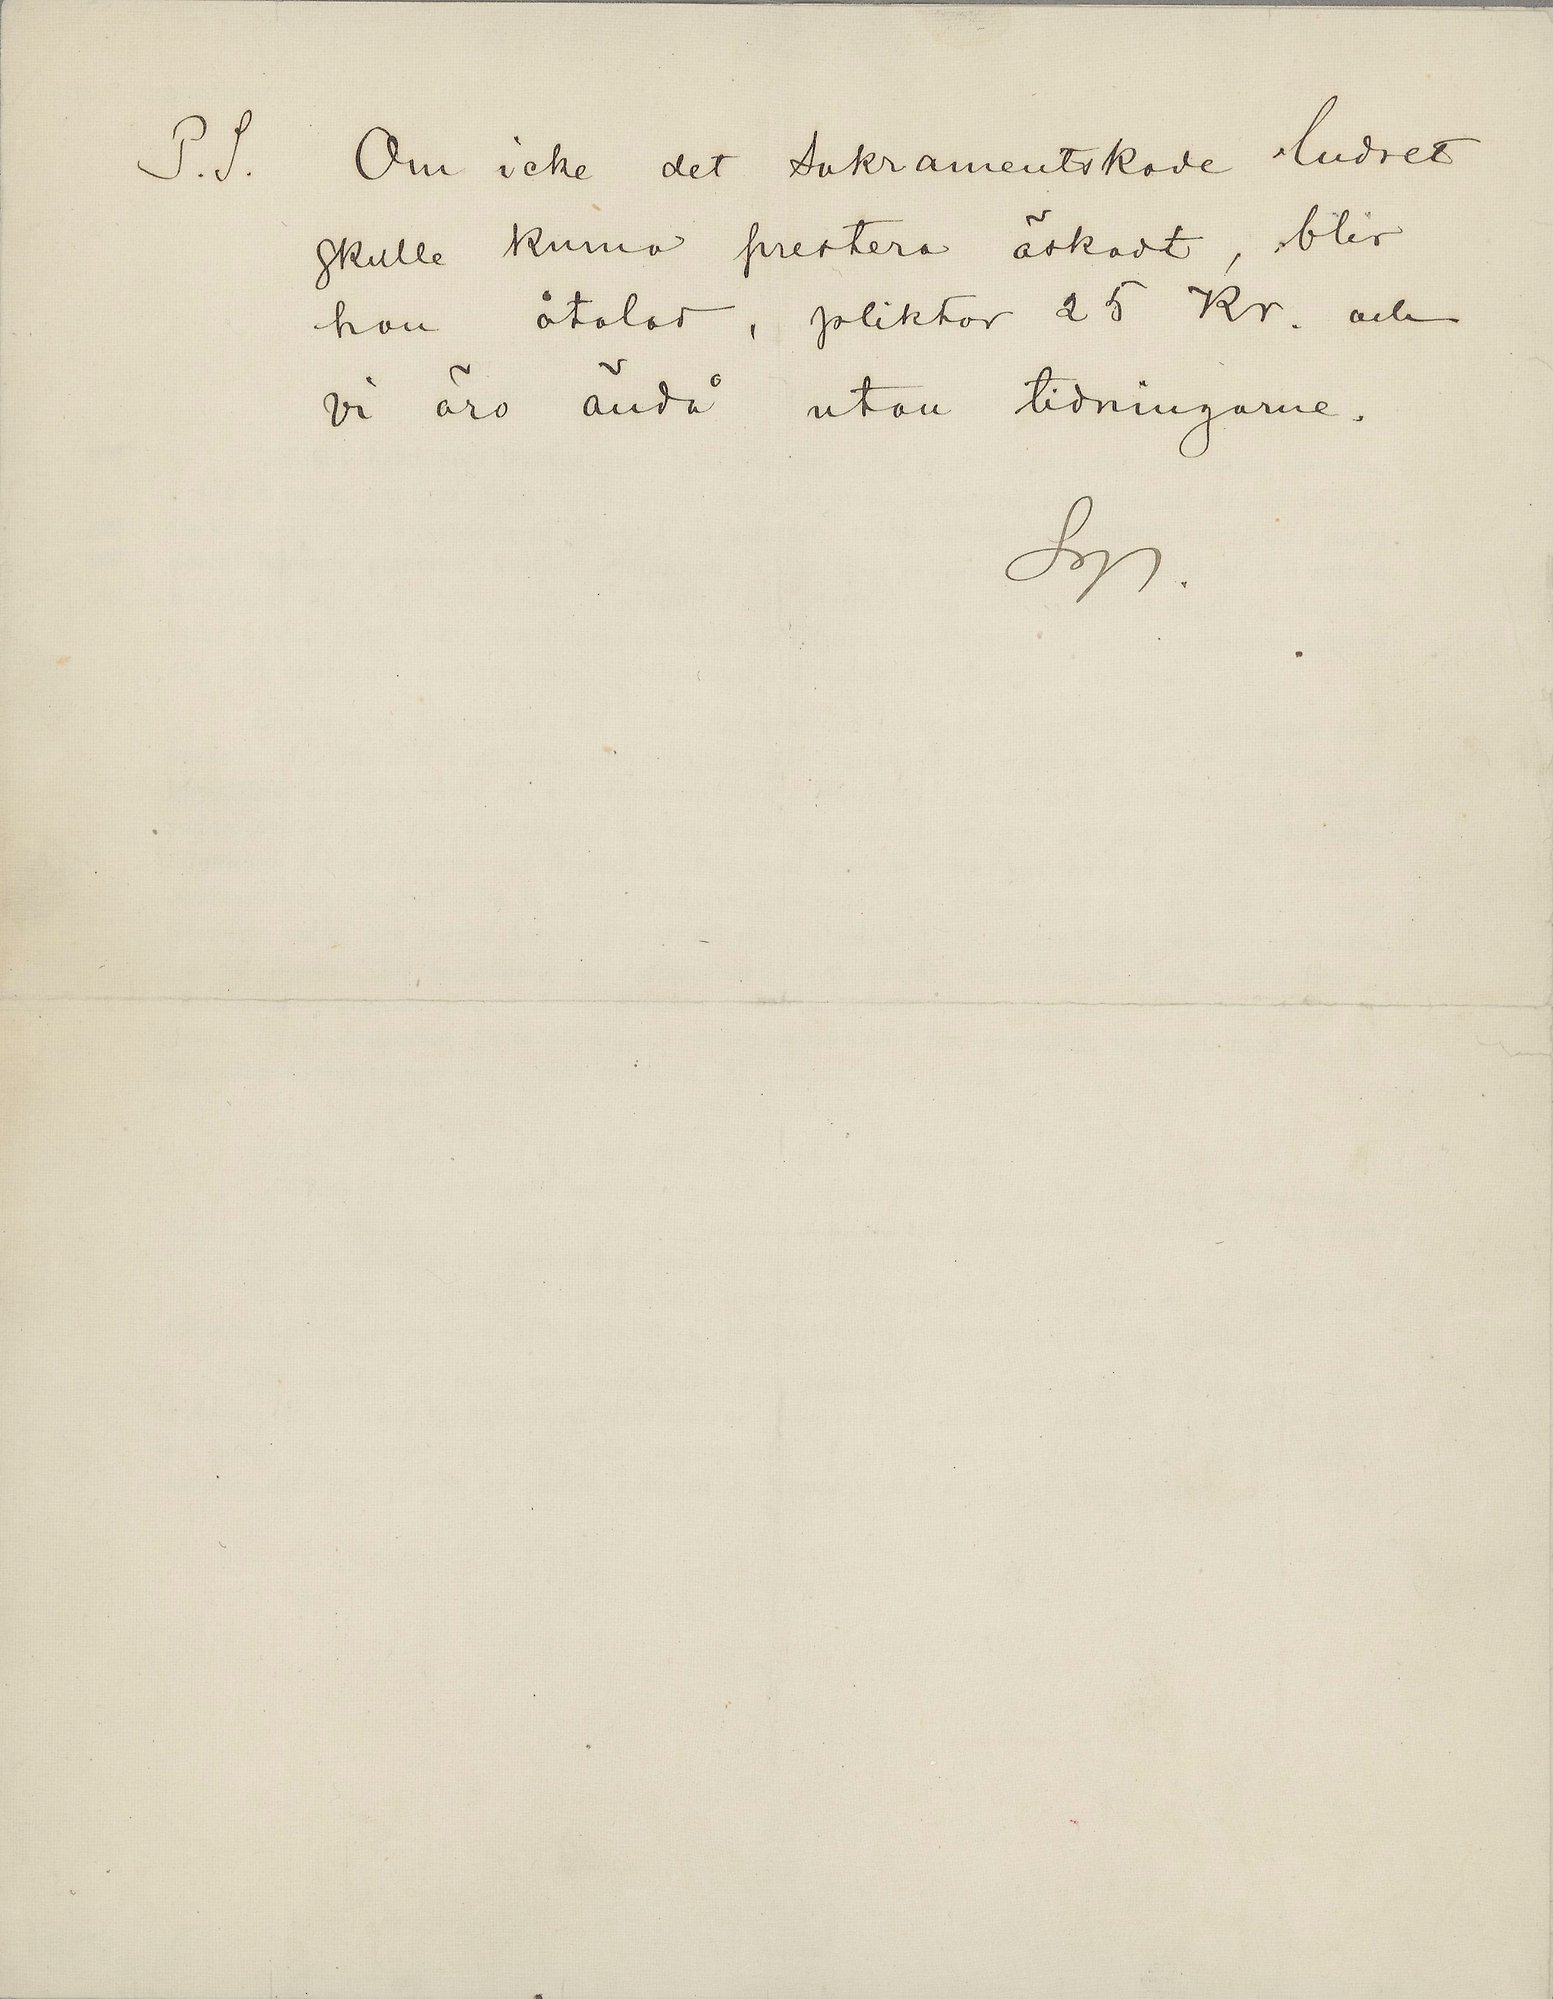 P.S. Om icke det Sakramentskade ludret
skulle kunna prestera äskadt, blir
hon åtalad, pliktar 25 Kr. och
vi äro ändå utan tidningarne.